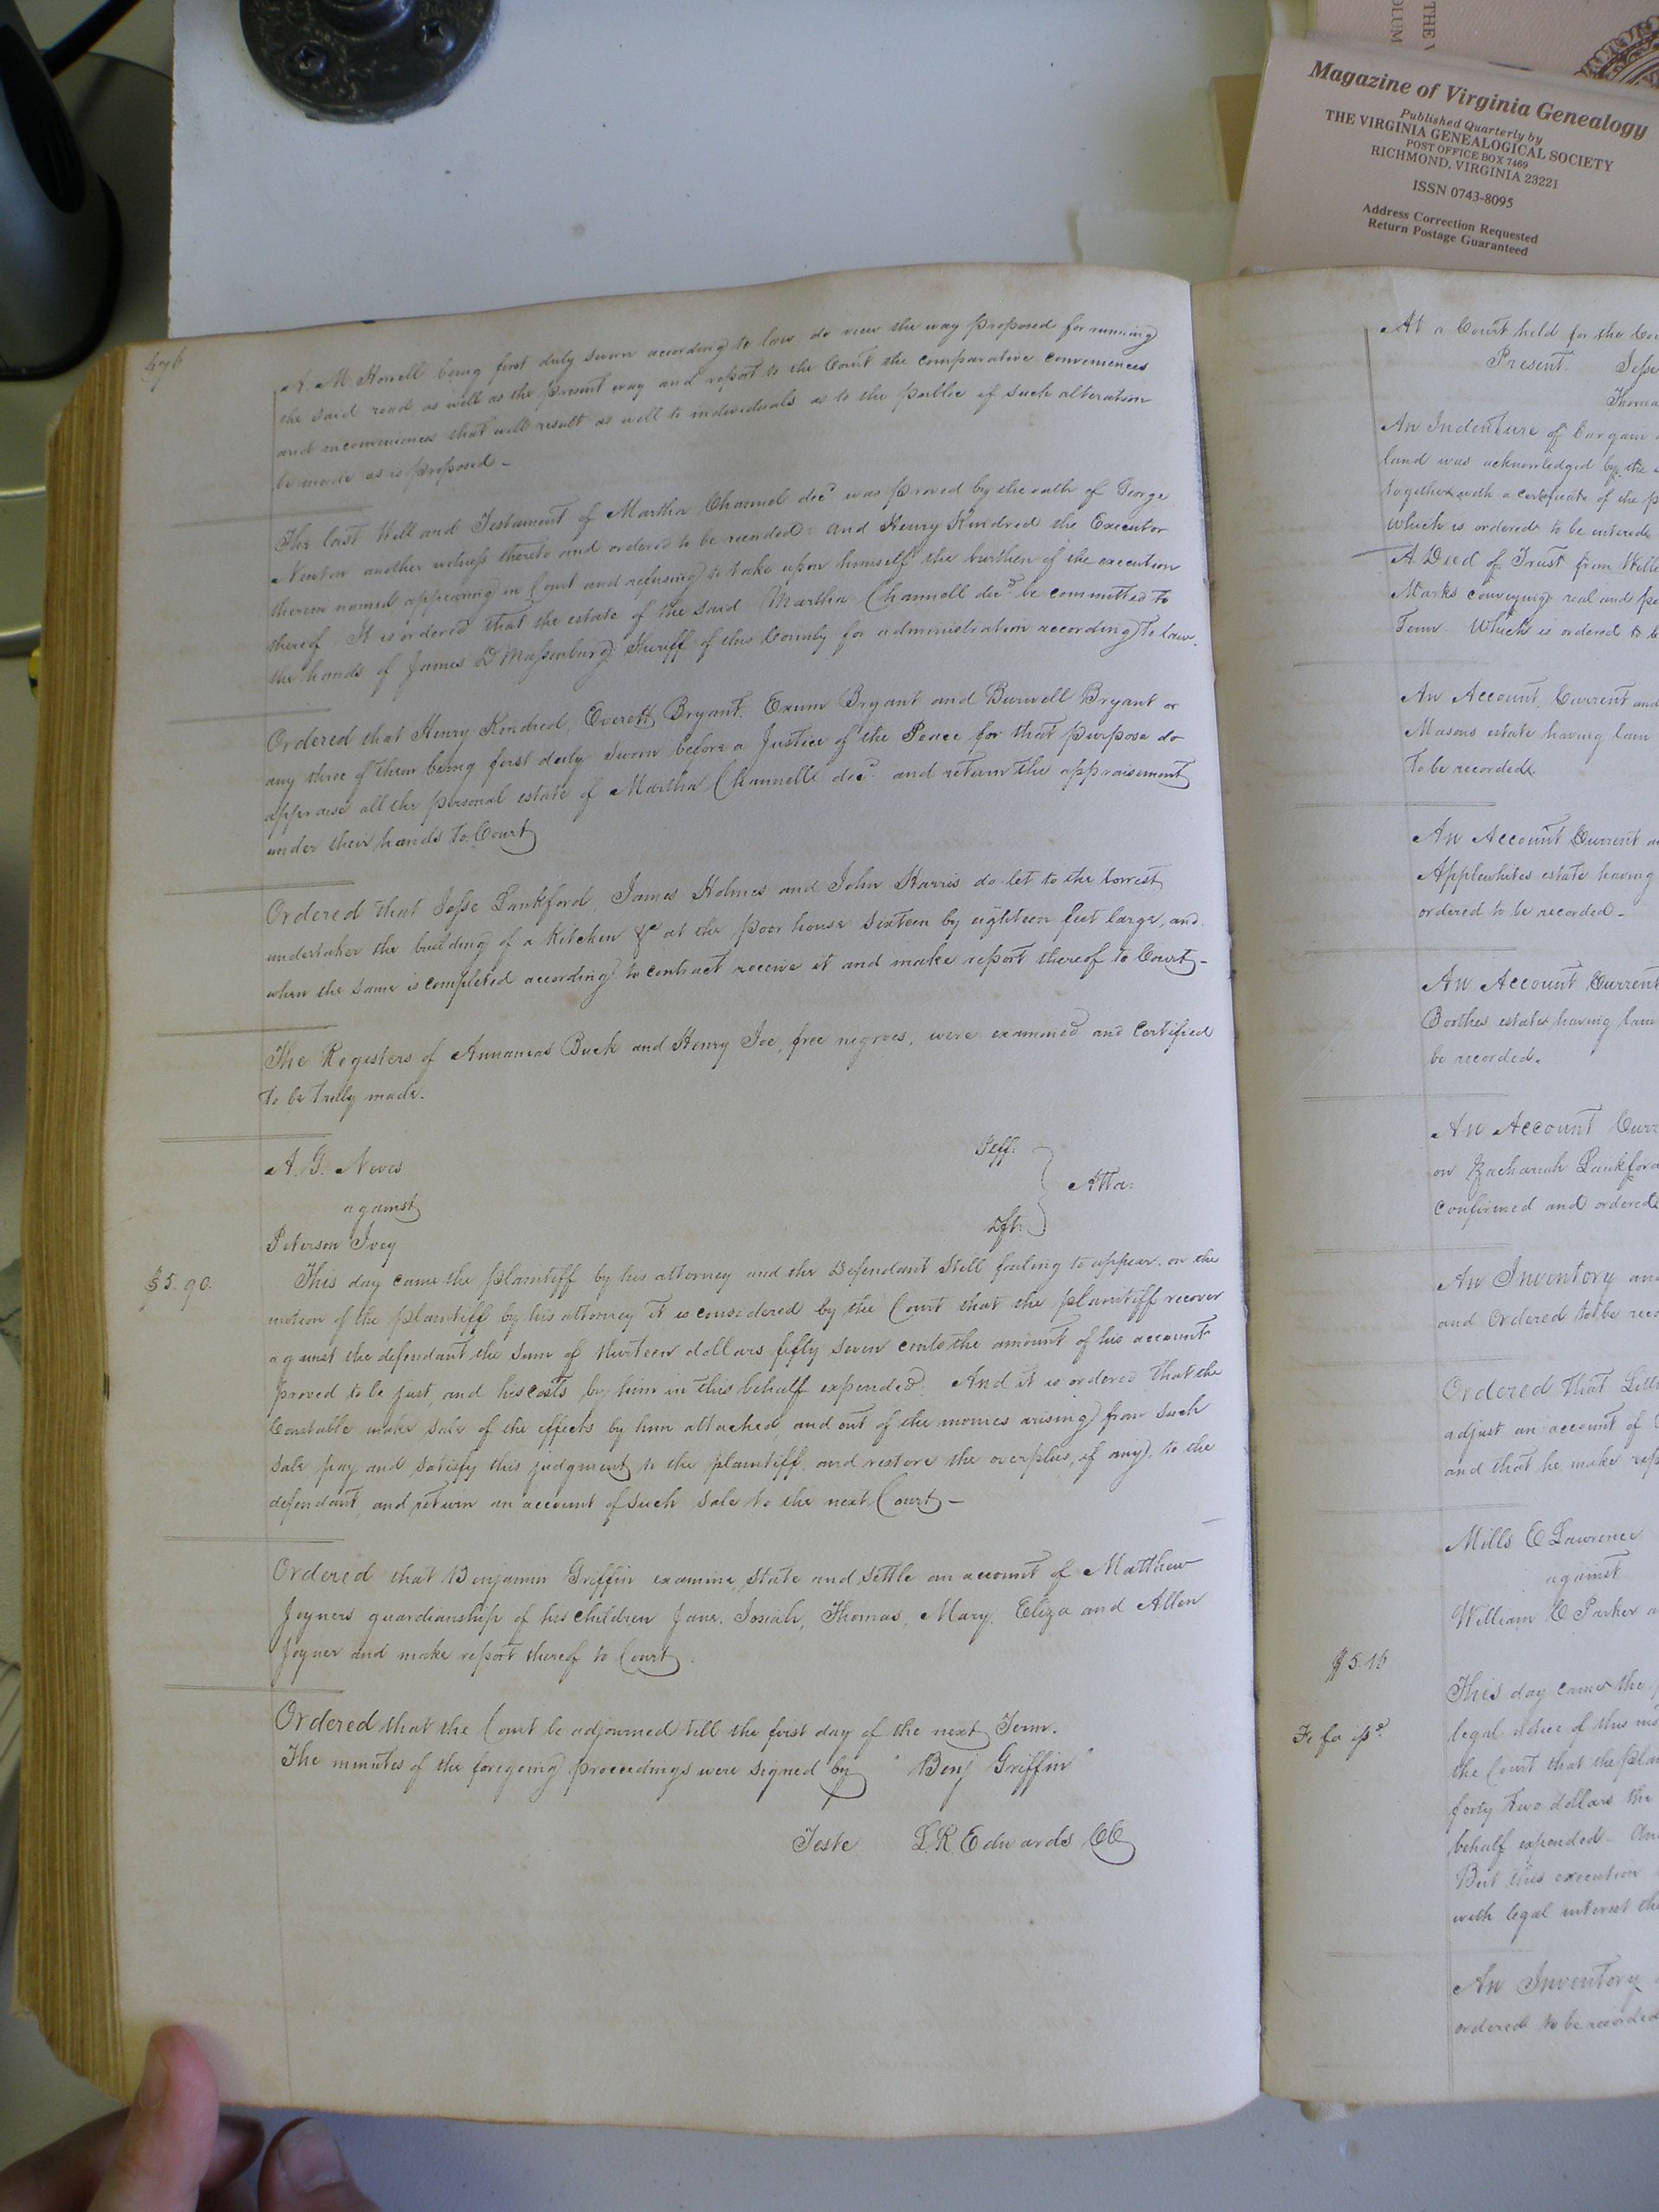 THE V
OLUM
Magazine of Virginia Genealogy
Published Quarterly by
THE VIRGINIA GENEALOGICAL SOCIETY
POST OFFICE BOX 7469
RICHMOND, VIRGINIA 23221
ISSN 0743-8095
Address Correction Requested
Return Postage Guaranteed
M Horrell being first duly sworn according to law do view the way proposed for running
the said road as well as the present way and report to the Court the comparative conveniences
and inconveniences that will result as well to individuals as to the public if such alteration
be made as is proposed -
The last Will and Testament of Martha Channel decd was proved by the oath of George
Newton another witness thereto and ordered to be recorded: and Henry Kindred the Executor
therein named appearing in Court and refusing to take upon himself the burthen of the execution
thereof It is ordered that the estate of the said Martha Channell decd be committed to
the hands of James D Massenburg Sheriff of this County for administration according to law.
Ordered that Henry Kindred, Everett Bryant, Exum Bryant and Burwell Bryant or
any three of them being first duly sworn before a Justice of the Peace for that purpose do
appraise all the personal estate of Martha Channell decd. and return the appraisement
under their hands to Court
Ordered that Jesse Lankford, James Holmes and John Harris do let to the lowest
undertaker the building of a Kitchen &c at the poor house sixteen by eighteen feet large, and
when the same is completed according to contract receive it and make report thereof to Court -
The Registers of Annanias Buck and Henry Joe, free negroes, were examined and certified
to be truly made.
A. G. Neves
Plff.
against
Atta:
Peterson Ivey
Dft.
$5.90.
This day came the plaintiff by his attorney and the Defendant still failing to appear, on the
motion of the plaintiff by his attorney it is considered by the Court that the plaintiff recover
against the defendant the sum of thirteen dollars fifty seven cents the amount of his account
proved to be just, and his costs by him in this behalf expended. And it is ordered that the
Constable make sale of the effects by him attached, and out of the monies arising from such
sale pay and satisfy this judgment to the plaintiff, and restore the overplus, if any, to the
defendant, and return an account of such sale to the next Court -
Ordered that Benjamin Griffin examine, state and settle an account of Matthew
Joyners guardianship of his children Jane, Josiah, Thomas, Mary, Eliza and Allen
Joyner and make report thereof to Court.
Ordered that the Court be adjourned till the first day of the next Term.
The minutes of the foregoing proceedings were signed by "Benj Griffin"
Teste L. R. Edwards CC
At a Court held for the Cou
Present. Jesse
Thomas
An Indenture of bargain
land was acknowledged by the
together with a certificate of the p
which is ordered to be
A Deed of Trust from Will
Marks conveying real and pe
Term Which is ordered to b
An Account Current and
Masons estate having lain
to be recorded.
An Account Current a
Applewhites estate having
ordered to be recorded -
An Account Current
Boothes estate, having lain
be recorded.
An Account Curr
on Zachariah Lankford
confirmed and ordered
An Inventory and
and Ordered to be rec
Ordered that
adjust an account of
and that he make rep
Mills E Lawrence
against
William C Parker a
$5.16
This day came the p
Fi fa issd.
legal notice of this mo
the Court that the plai
forty two dollars the
behalf expended - An
But this execution
with legal interest the
An Inventory
ordered to be recorded